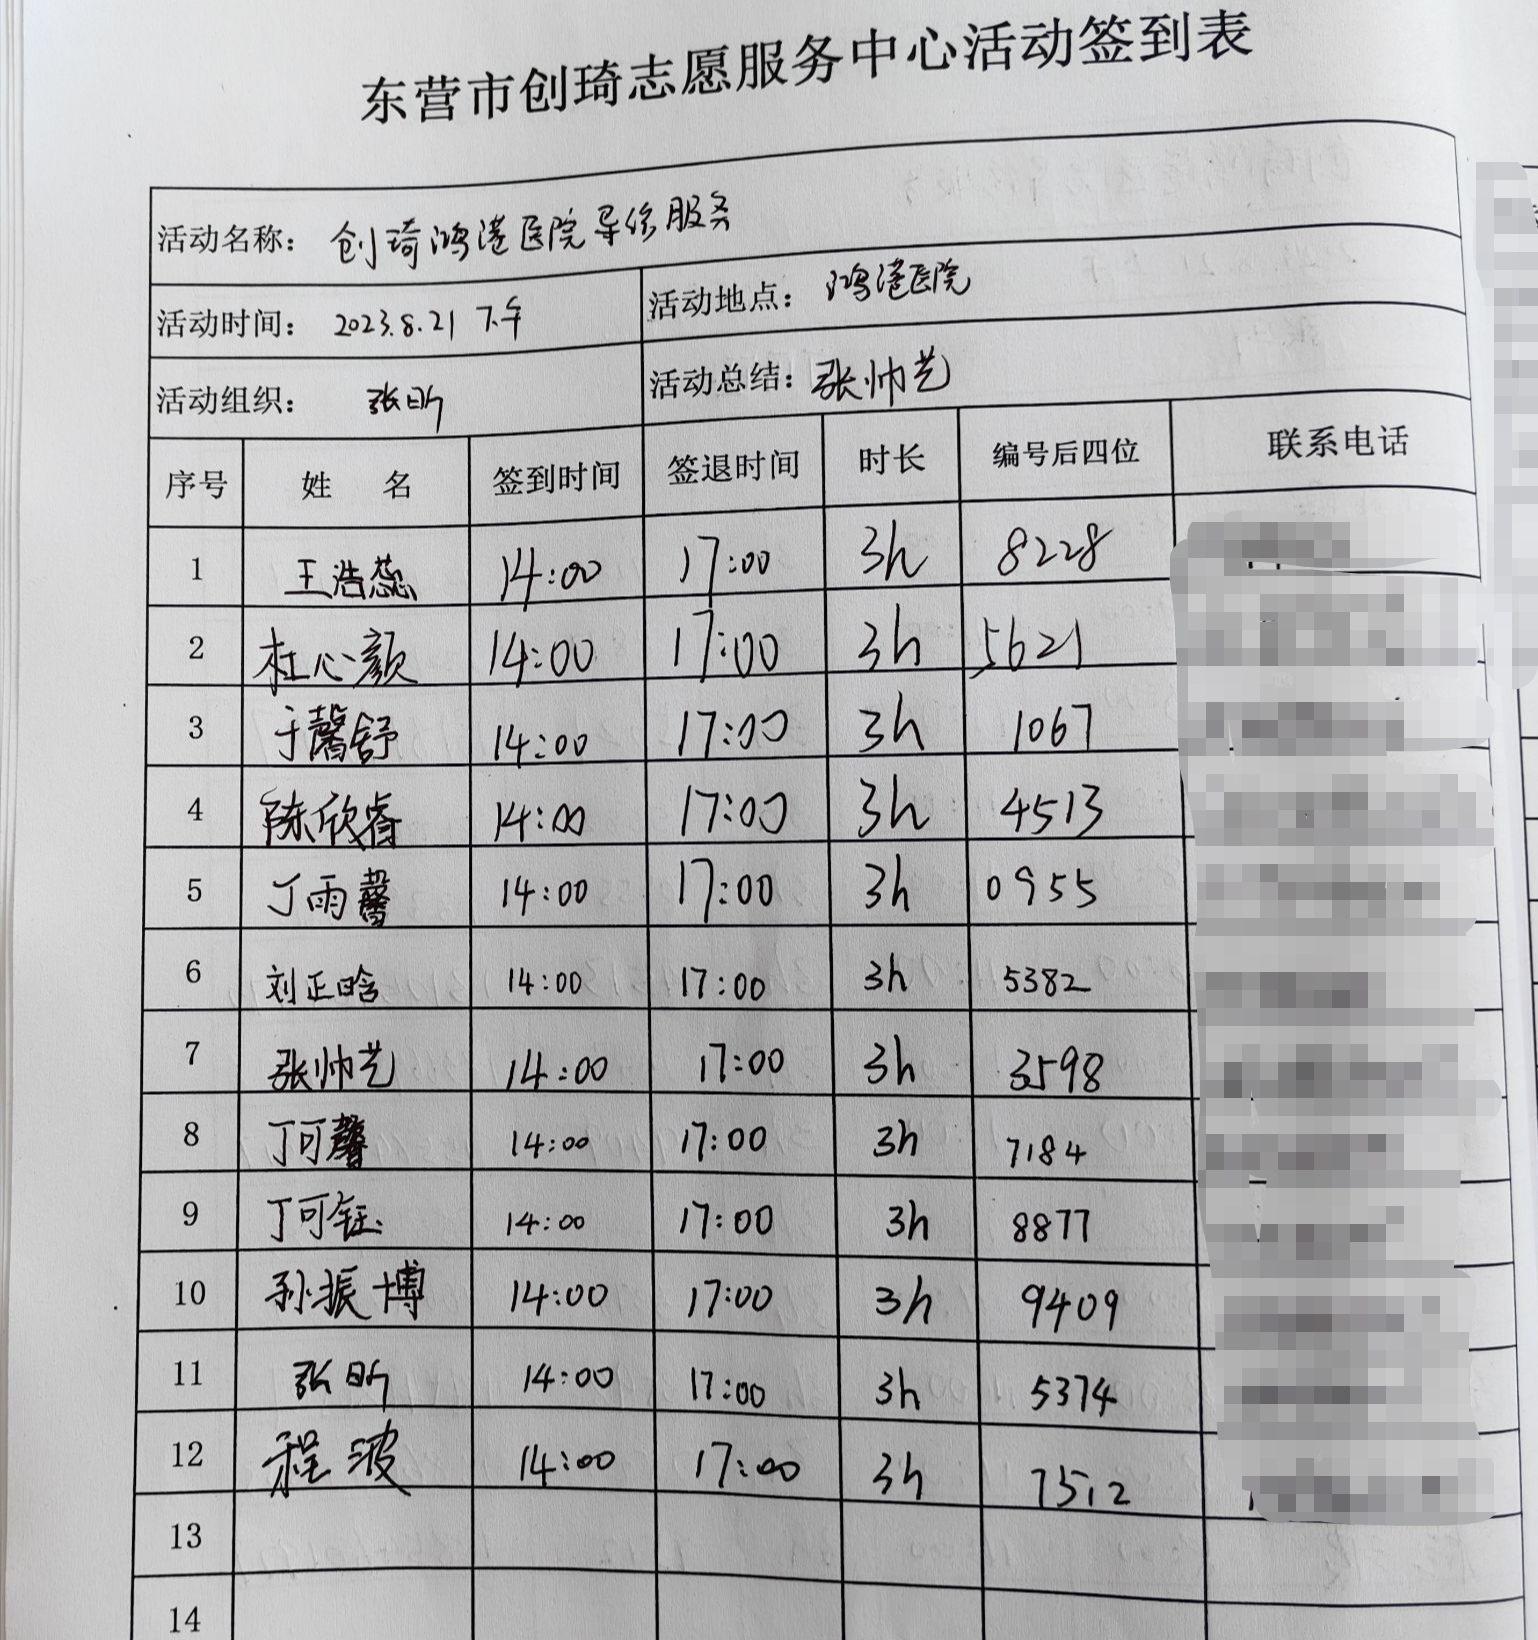 东营市创琦志愿服务中心活动签到表
活动名称： 创琦鸿港医院导诊服务
活动时间： 2023.8.21 下午 活动地点： 鸿港医院
活动组织： 张昕 活动总结： 张帅艺
序号 姓 名 签到时间 签退时间 时长 编号后四位 联系电话
1 王浩蕊 14:00 17:00 3h 8228
2 杜心颜 14:00 17:00 3h 5621
3 于馨舒 14:00 17:00 3h 1067
4 陈欣睿 14:00 17:00 3h 4513
5 丁雨馨 14:00 17:00 3h 0955
6 刘正晗 14:00 17:00 3h 5382
7 张帅艺 14:00 17:00 3h 3598
8 丁可馨 14:00 17:00 3h 7184
9 丁可钰 14:00 17:00 3h 8877
10 孙振博 14:00 17:00 3h 9409
11 张昕 14:00 17:00 3h 5374
12 程波 14:00 17:00 3h 7512
13
14